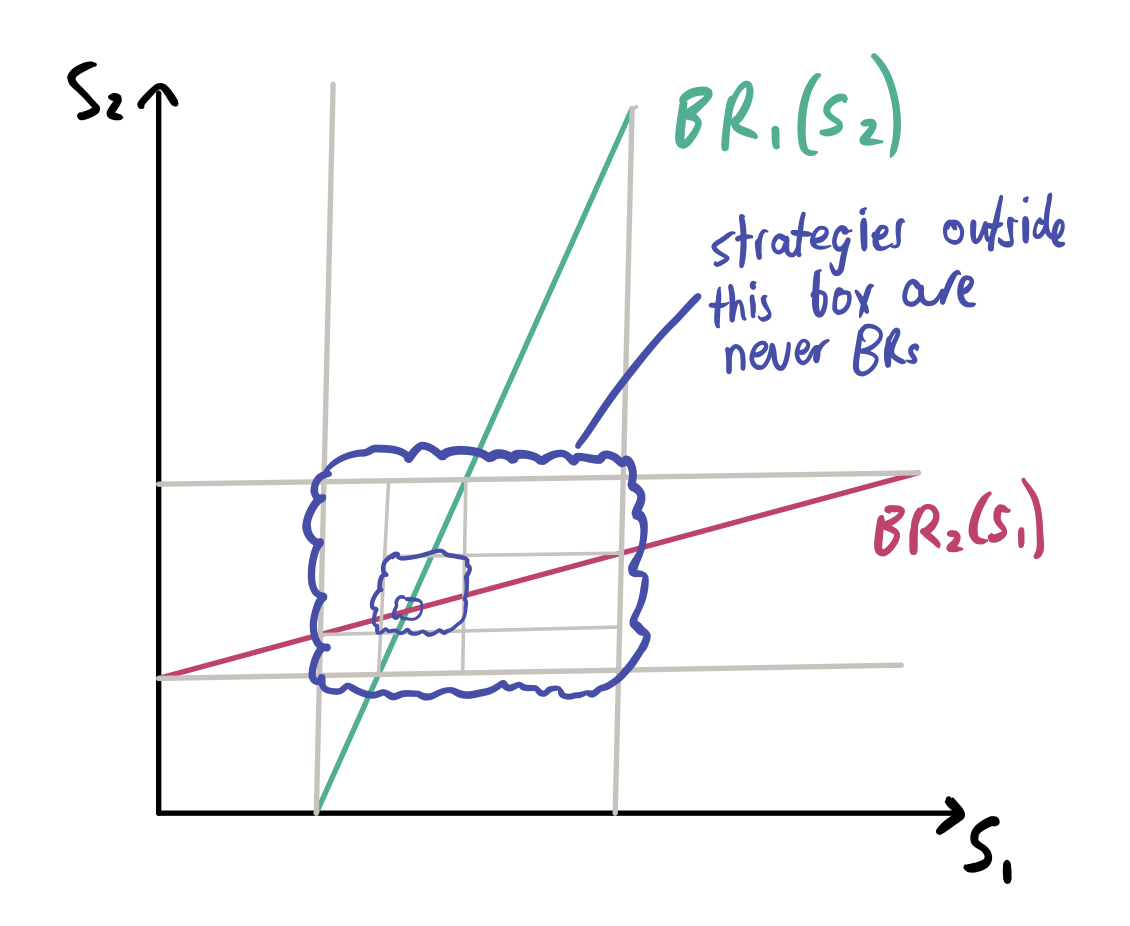 S₂
BR₁(S₂)
strategies outside
this box are
never BRs
BR₂(S₁)
S₁